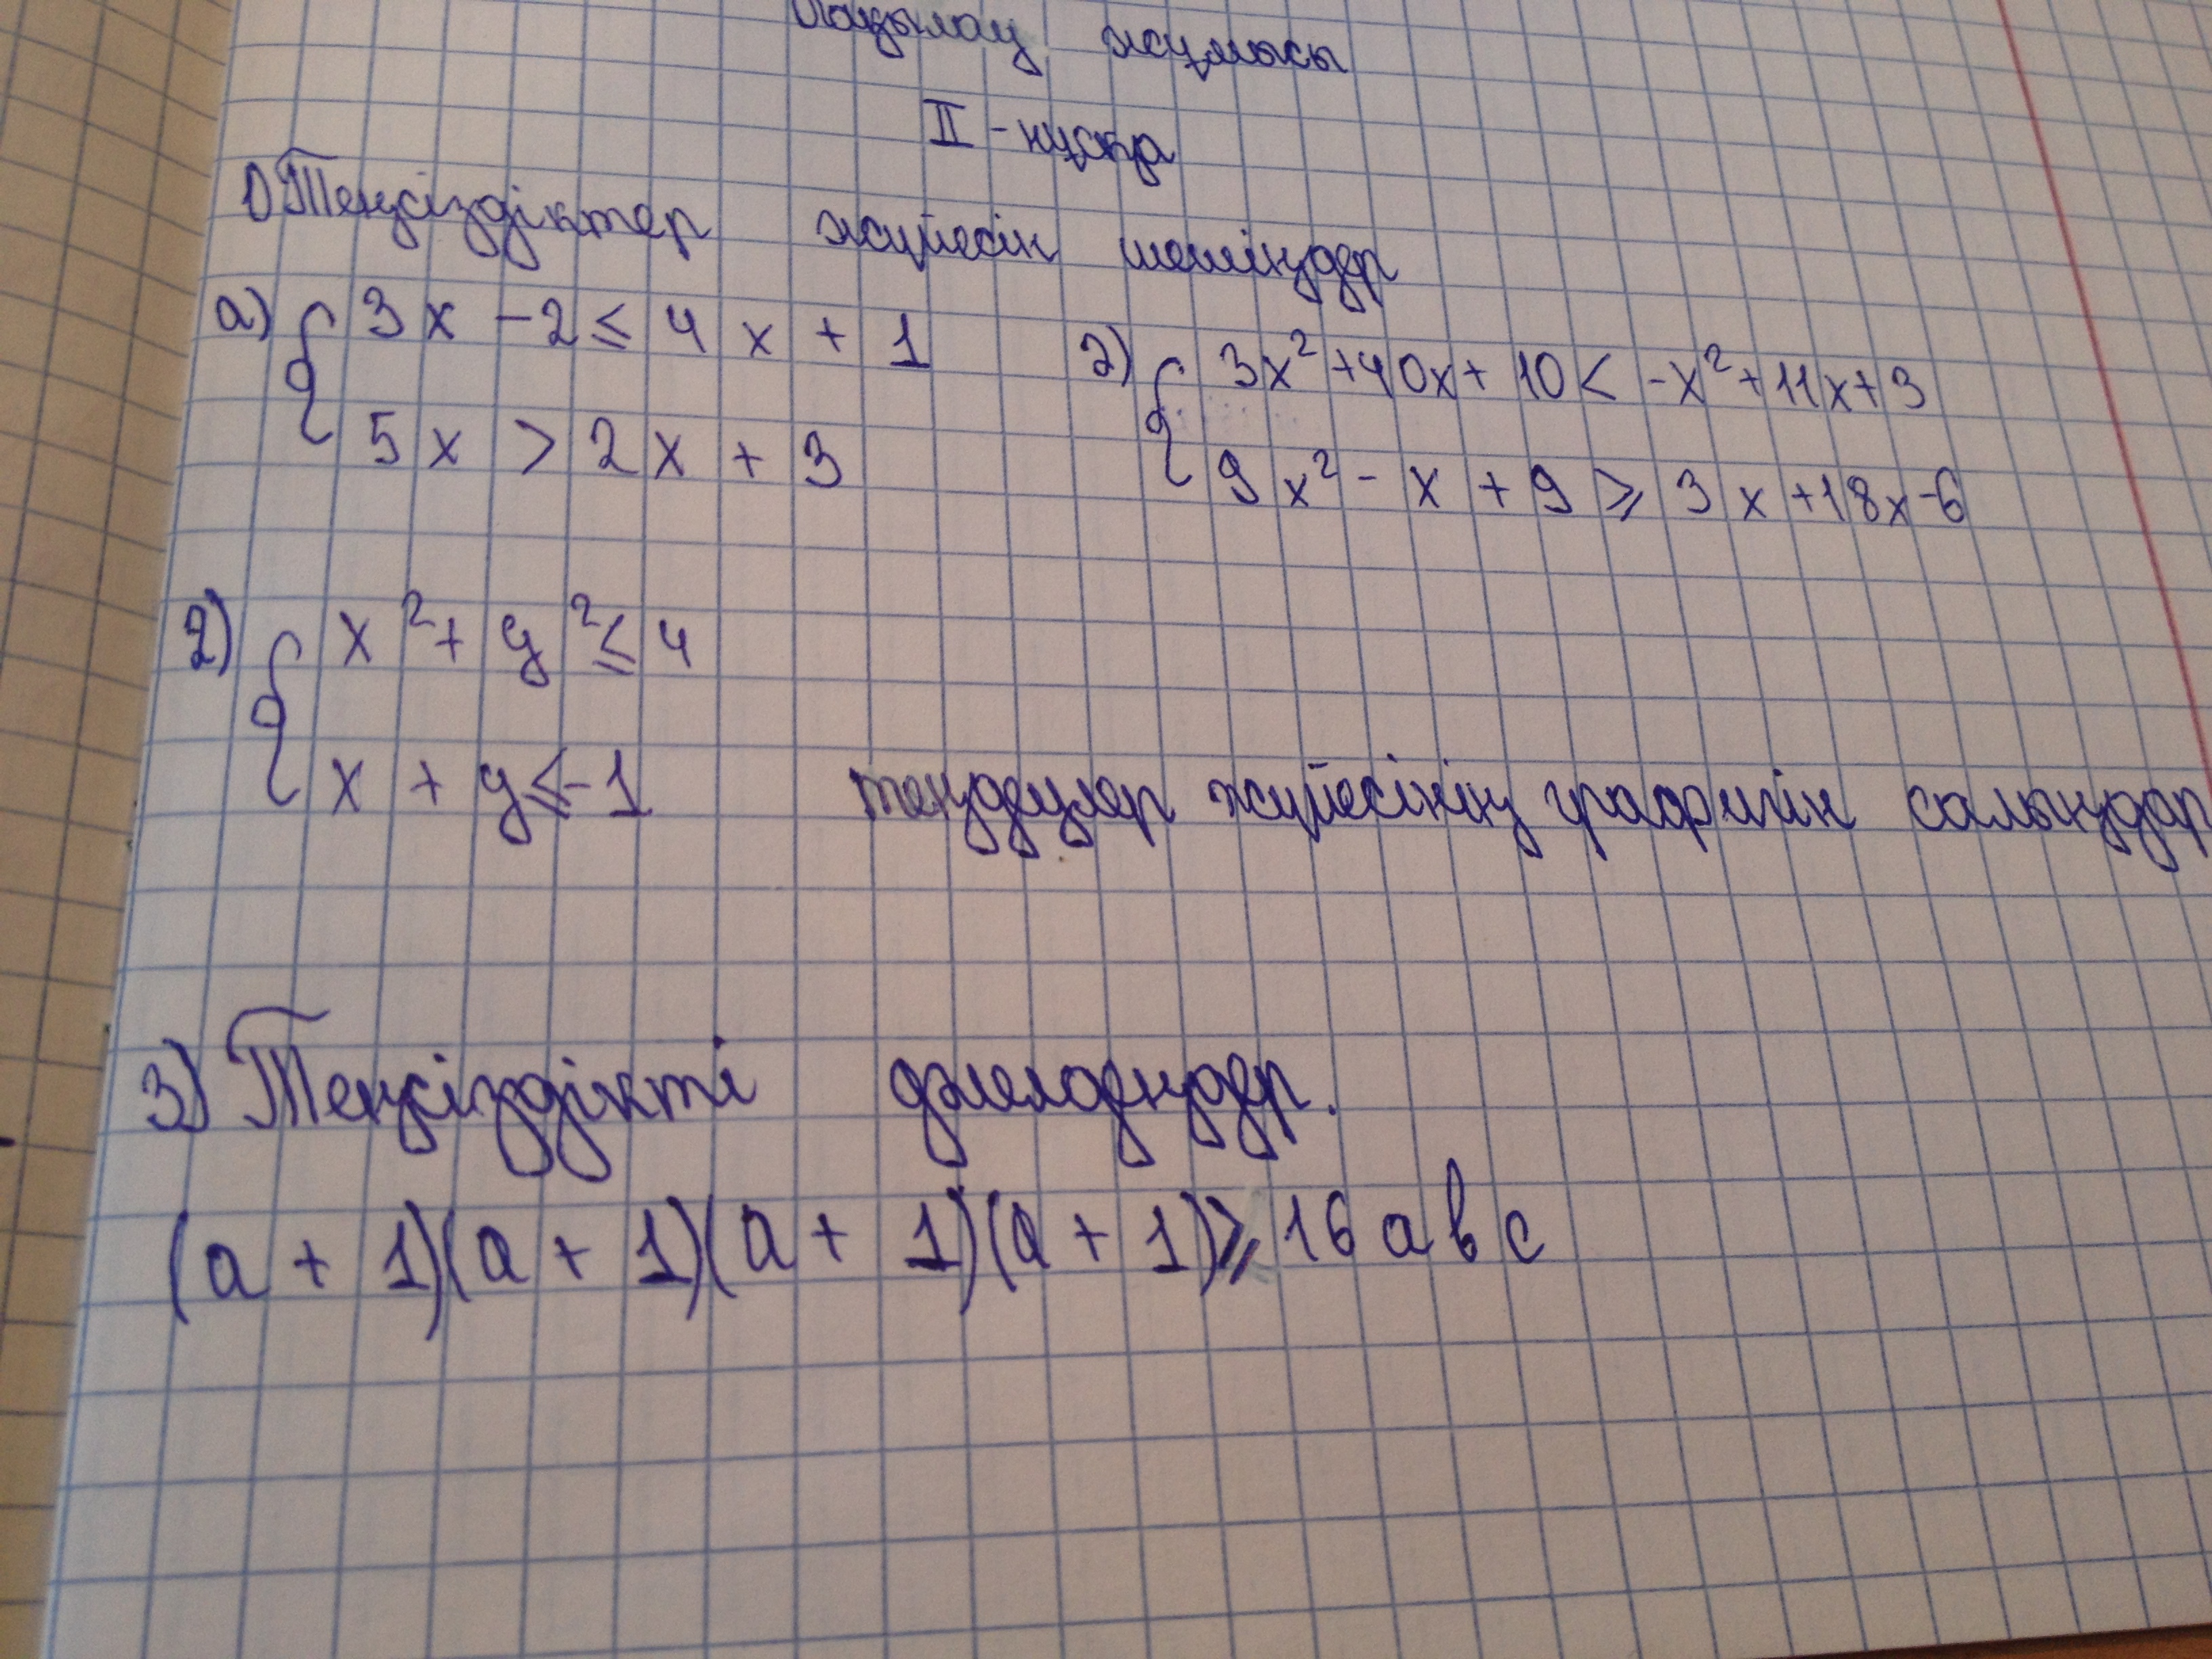 Бақылау жұмысы
II - нұсқа
1) Теңсіздіктер жүйесін шешіңдер
а) { 3x - 2 ≤ 4x + 1
5x > 2x + 3
2) { 3x² + 40x + 10 < -x² + 11x + 3
9x² - x + 9 ≥ 3x + 18x - 6
2) { x² + y² ≤ 4
x + y ≤ -1 теңдеулер жүйесінің графигін салыңдар
3) Теңсіздікті дәлелдеңдер.
(a + 1)(a + 1)(a + 1)(a + 1) ≥ 16 a b c